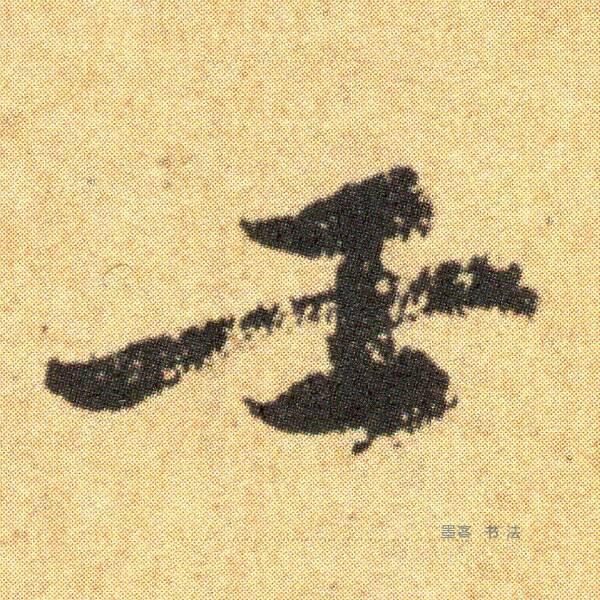 壬
墨客 书法